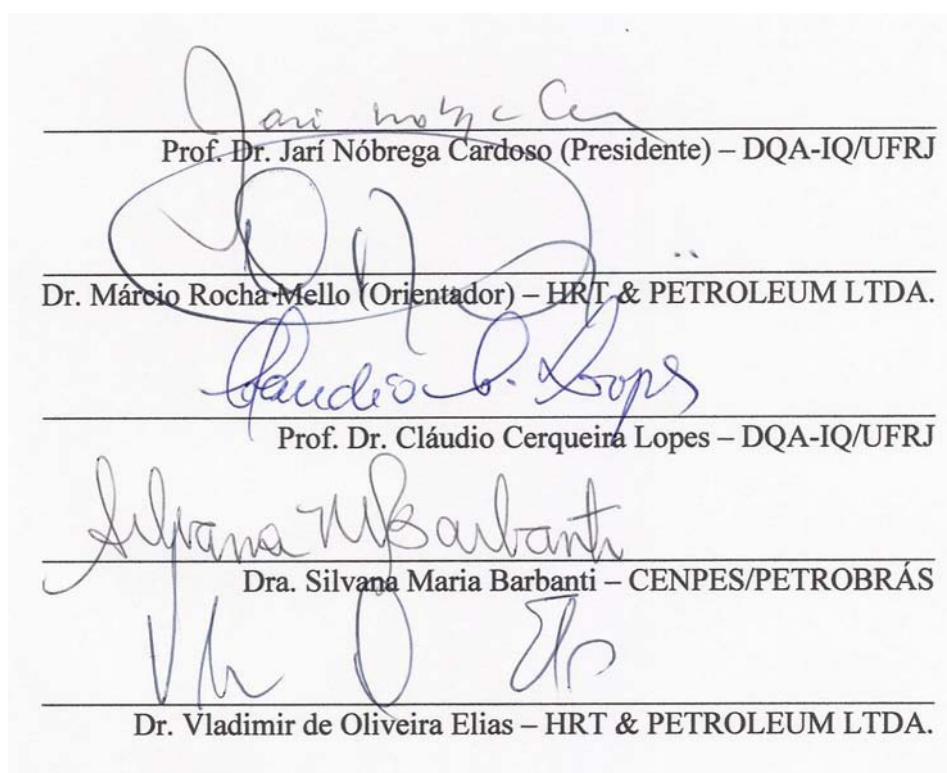 Jari
Prof. Dr. Jarí Nóbrega Cardoso (Presidente) – DQA-IQ/UFRJ
Dr. Márcio Rocha Mello (Orientador) – HRT & PETROLEUM LTDA.
Claudio C. Lopes
Prof. Dr. Cláudio Cerqueira Lopes – DQA-IQ/UFRJ
Silvana M Barbanti
Dra. Silvana Maria Barbanti – CENPES/PETROBRÁS
Dr. Vladimir de Oliveira Elias – HRT & PETROLEUM LTDA.